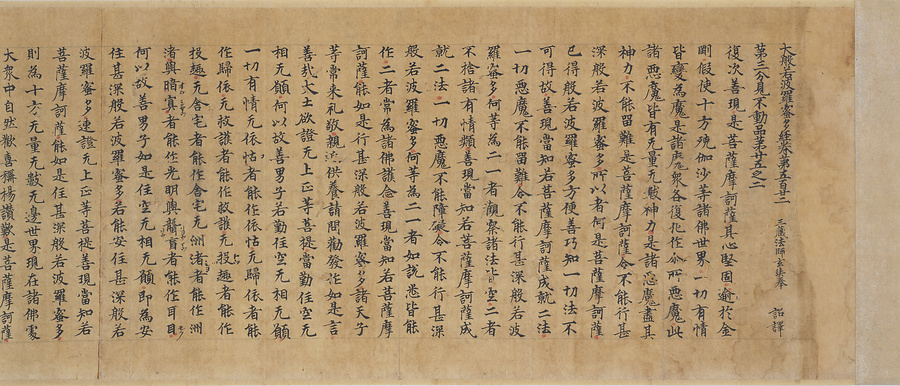 大般若波羅蜜多經卷第五百廿二
三藏法師玄奘奉 詔譯
第三分見不動品第廿五之二
復次善現是菩薩摩訶薩其心堅固逾於金
剛假使十方殑伽沙等諸佛世界一切有情
皆變為魔是諸魔衆各復化作尒所惡魔此
諸惡魔皆有无量无數神力是諸惡魔盡其
神力不能留難是菩薩摩訶薩令不能行甚
深般若波羅蜜多所以者何是菩薩摩訶薩
已得般若波羅蜜多方便善巧知一切法不
可得故善現當知若菩薩摩訶薩成就二法
一切惡魔不能留難令不能行甚深般若波
羅蜜多何等為二一者觀察諸法皆空二者
不捨諸有情類善現當知若菩薩摩訶薩成
就二法一切惡魔不能障礙令不能行甚深
般若波羅蜜多何等為二一者如說悉皆能
作二者常為諸佛護念善現當知若菩薩摩
訶薩能如是行甚深般若波羅蜜多諸天子
等常来礼敬親近供養請問勸發作如是言
善哉大士欲證无上正等菩提當勤住空无
相无願何以故善男子若勤住空无相无願
一切有情无依怙者能作依怙无歸依者能
作歸依无救護者能作救護无投趣者能作
投趣无舍宅者能作舍宅无洲渚者能作洲
渚與暗冥者能作光明與聾盲者能作耳目
何以故善男子如是住空无相无願即為安
住甚深般若波羅蜜多若能安住甚深般若
波羅蜜多速證无上正等菩提善現當知若
菩薩摩訶薩能如是住甚深般若波羅蜜多
則為十方无量无數无邊世界現在諸佛處
大衆中自然歡喜稱揚讚歎是菩薩摩訶薩